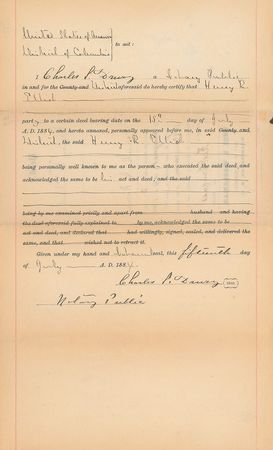 United States of America
District of Columbia } to wit:
I Charles P. Drury a Notary Public
in and for the County and District aforesaid do hereby certify that Henry R.
Elliot
party to a certain deed bearing date on the 15th day of July
A. D. 1884, and hereto annexed, personally appeared before me, in said County and
District, the said Henry R. Elliot
being personally well known to me as the person who executed the said deed, and
acknowledged the same to be his act and deed; and the said
being by me examined privily and apart from husband and having
the deed aforesaid fully explained to by me, acknowledged the same to be
act and deed, and declared that had willingly, signed, sealed, and delivered the
same, and that wished not to retract it.
Given under my hand and Notarial seal, this fifteenth day
of July A. D. 1884.
Charles P. Drury
Notary Public